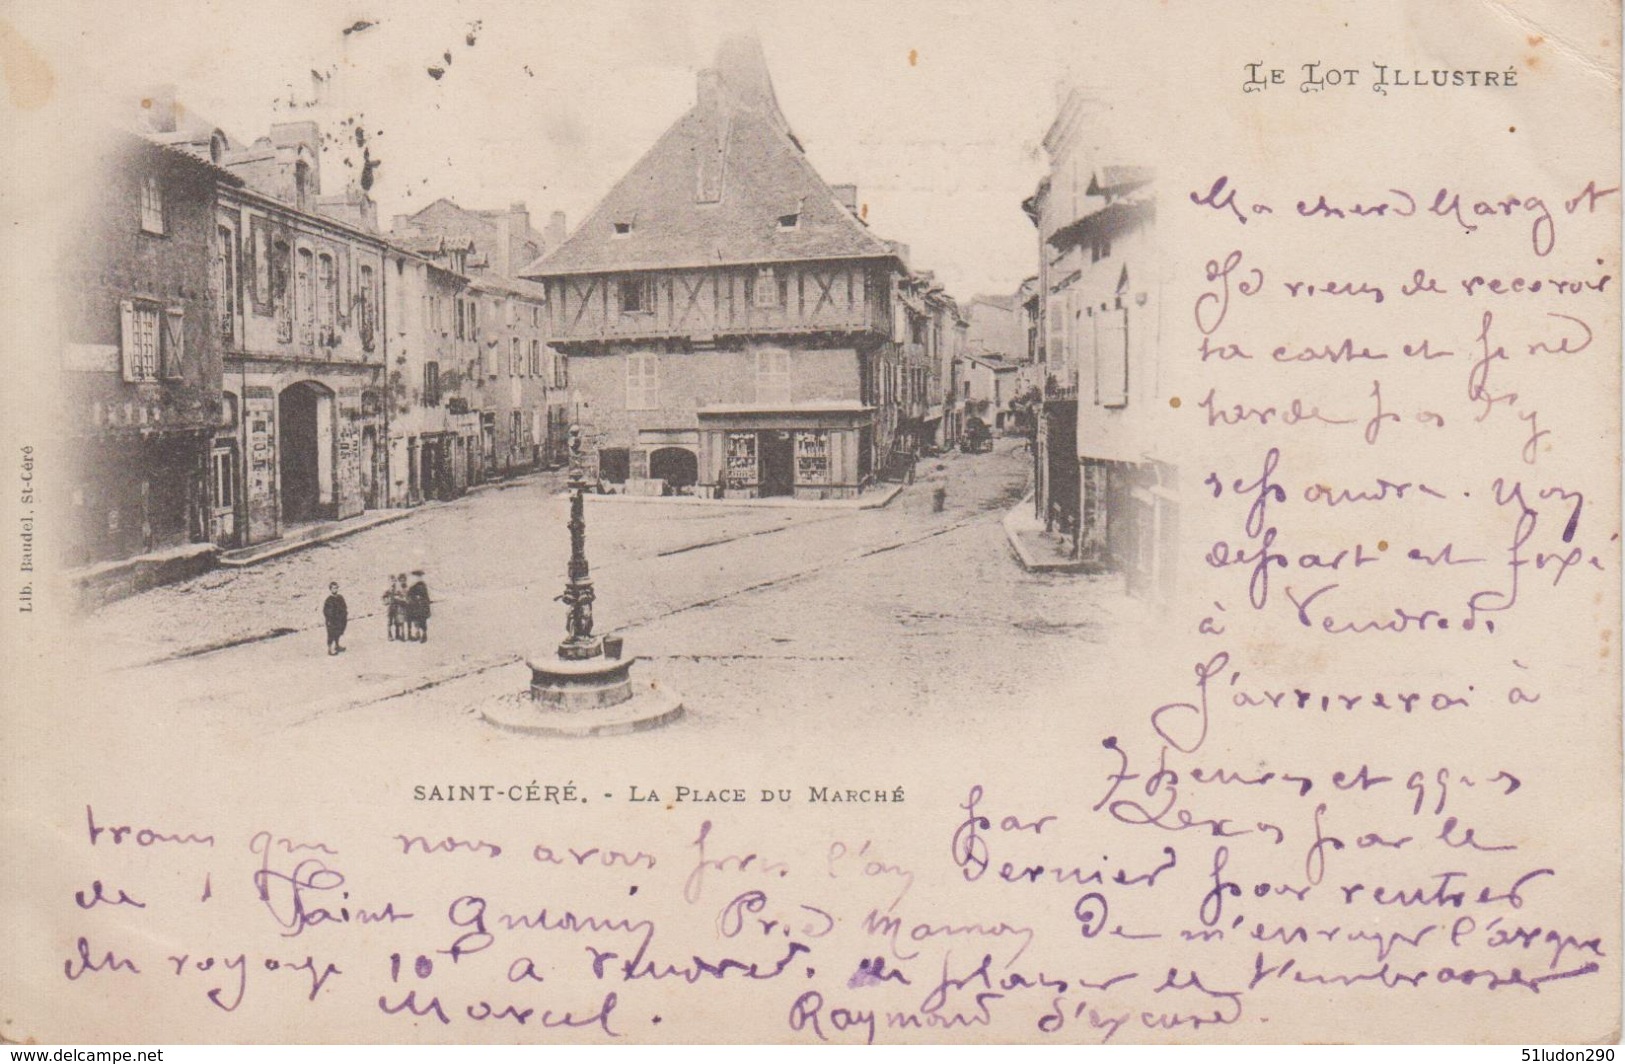 LE LOT ILLUSTRÉ
Ma chère Margot
Je viens de recevoir
ta carte et je ne
tarde pas d'y
repondre. Mon
depart est fixé
à Vendredi
J'arriverai à
7 heures et qques
par le
train que nous avons pris l'an dernier pour rentrer
de Saint Antonin Prie Maman De m'envoyer l'argent
du voyage 10f a Vendredi. de plaisir de t'embrasser
Marcel. Raymond s'excuse.
SAINT-CÉRÉ. - LA PLACE DU MARCHÉ
Lib. Baudel, St-Céré
www.delcampe.net
51ludon290